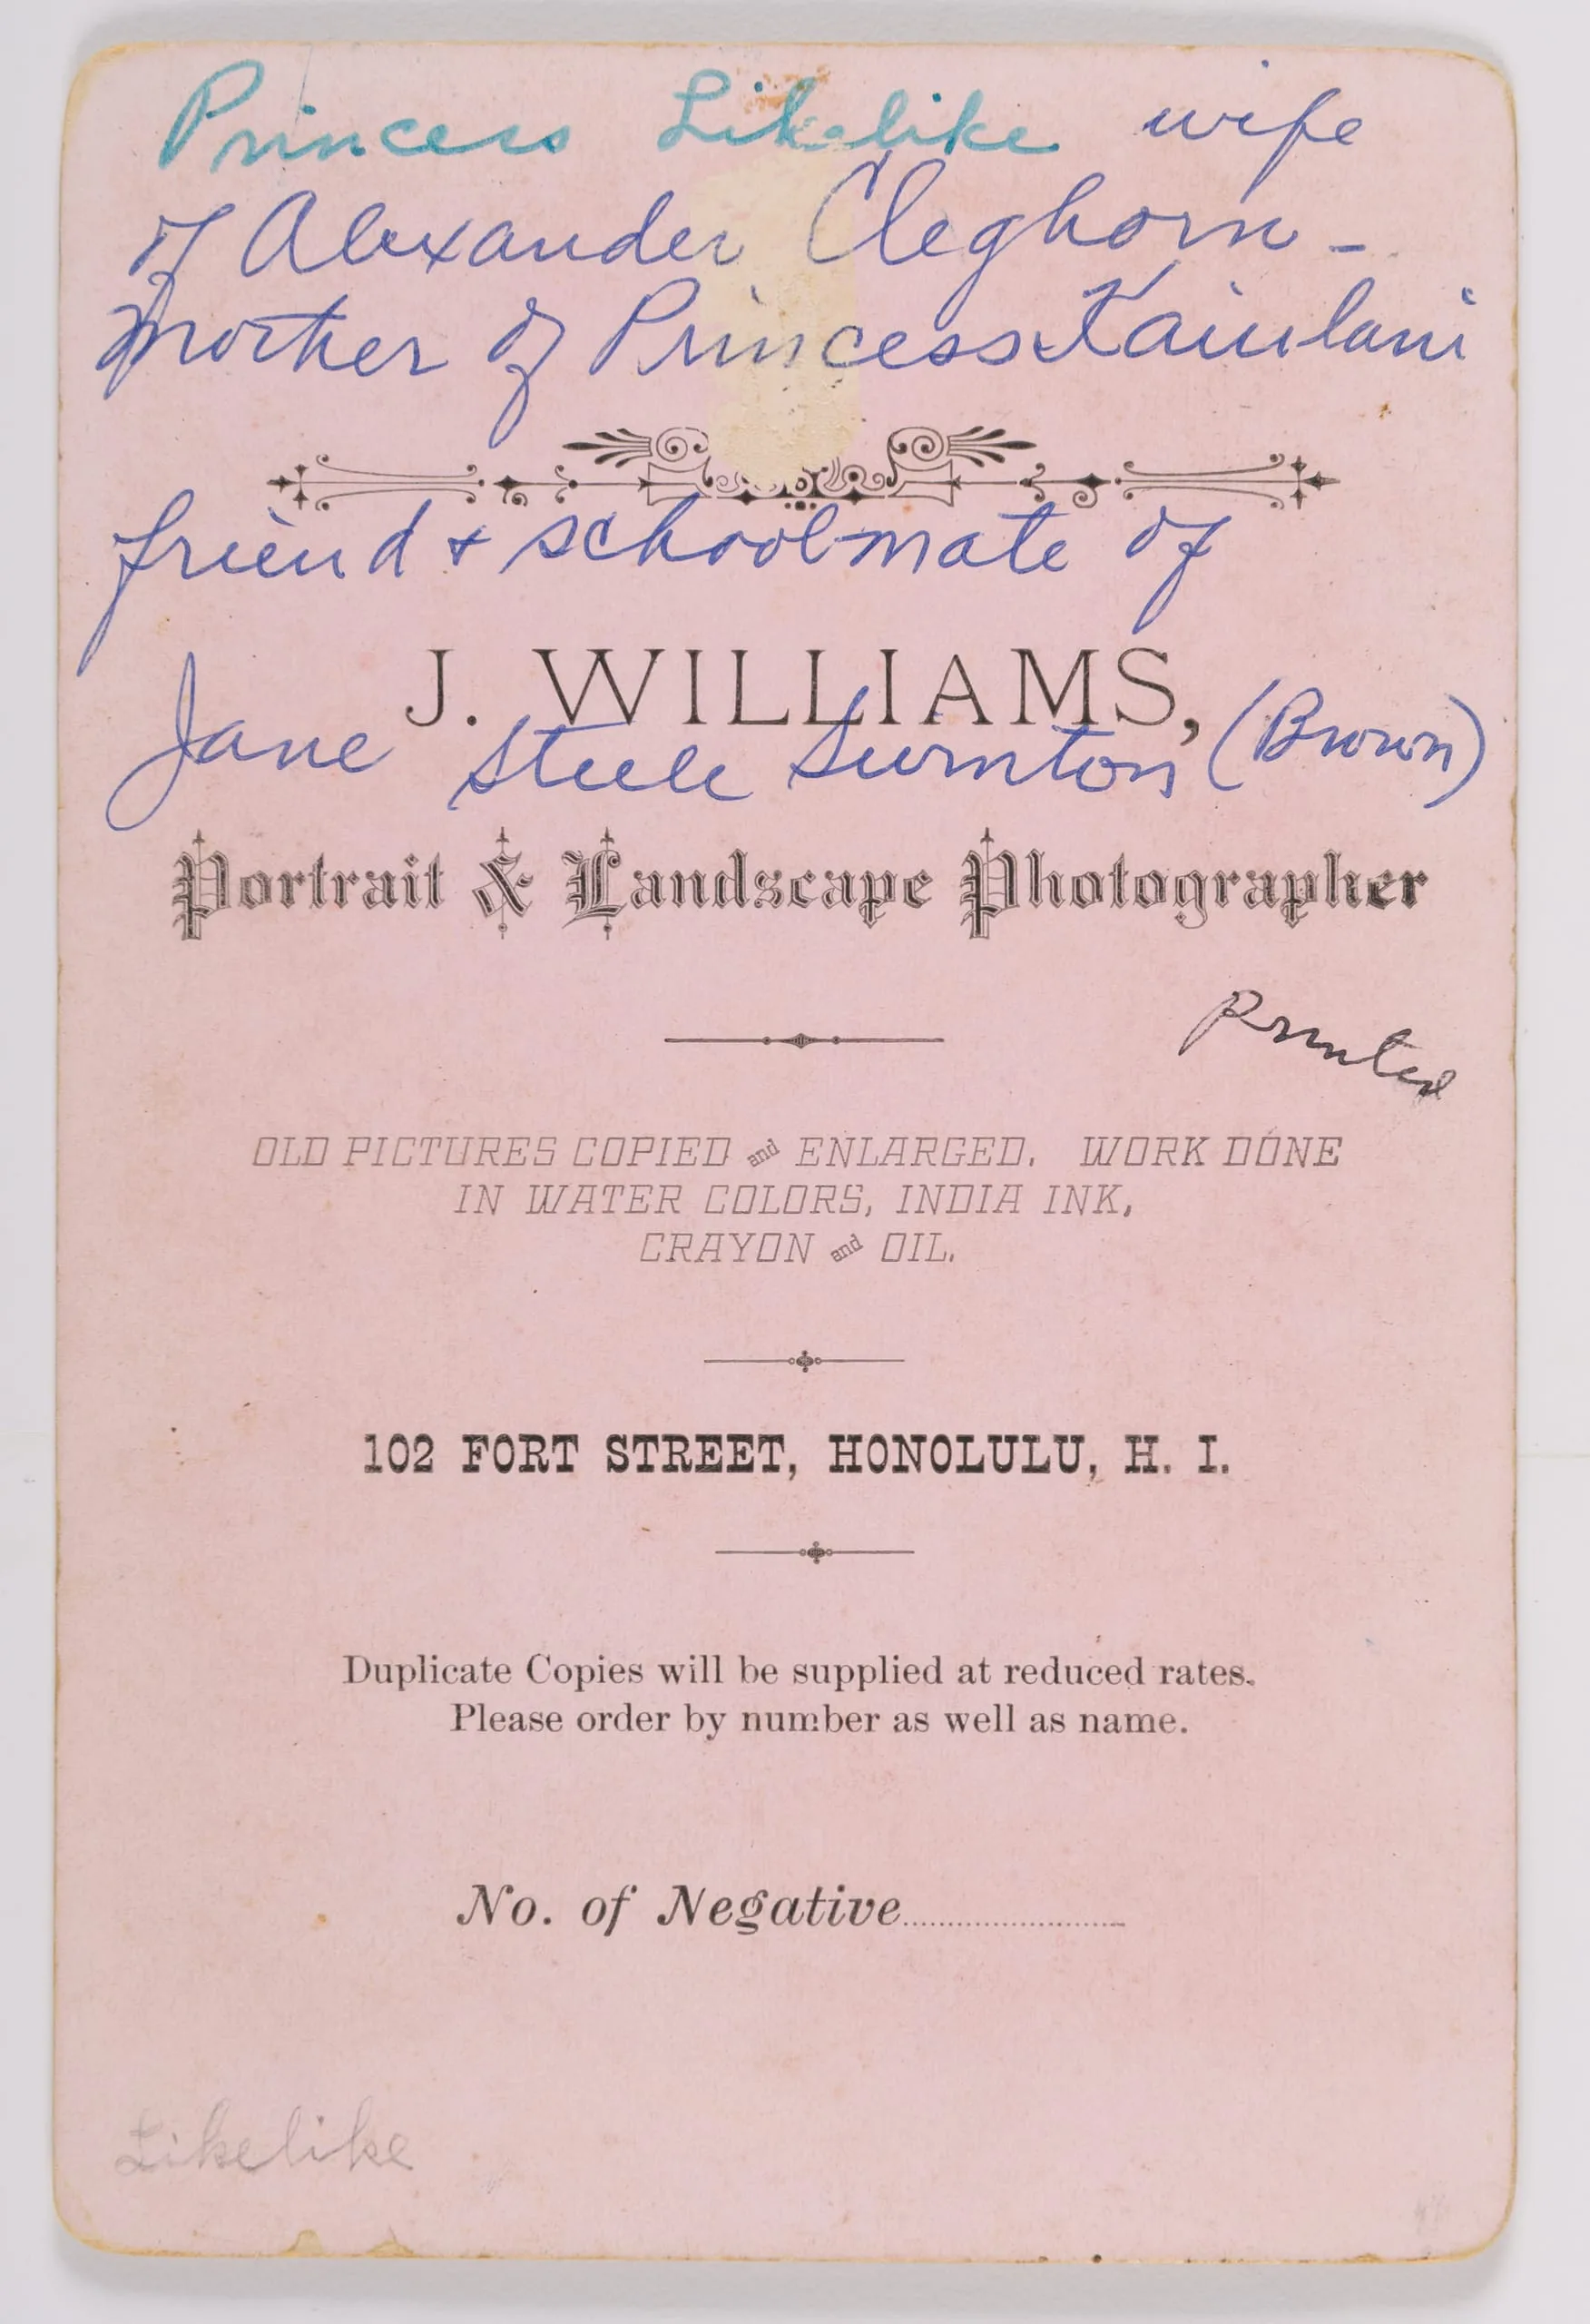 Princess Likelike wife
of Alexander Cleghorn -
mother of Princess Kaiulani
friend + schoolmate of
J. WILLIAMS,
Jane Steele (Brown)
Portrait & Landscape Photographer
Printed
OLD PICTURES COPIED and ENLARGED. WORK DONE
IN WATER COLORS, INDIA INK,
CRAYON and OIL.
102 FORT STREET, HONOLULU, H. I.
Duplicate Copies will be supplied at reduced rates.
Please order by number as well as name.
No. of Negative
Likelike